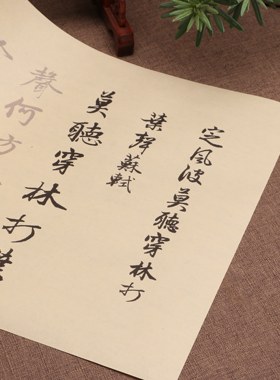 定風波莫聽穿林打
葉聲蘇軾
莫聽穿林打葉
聲何